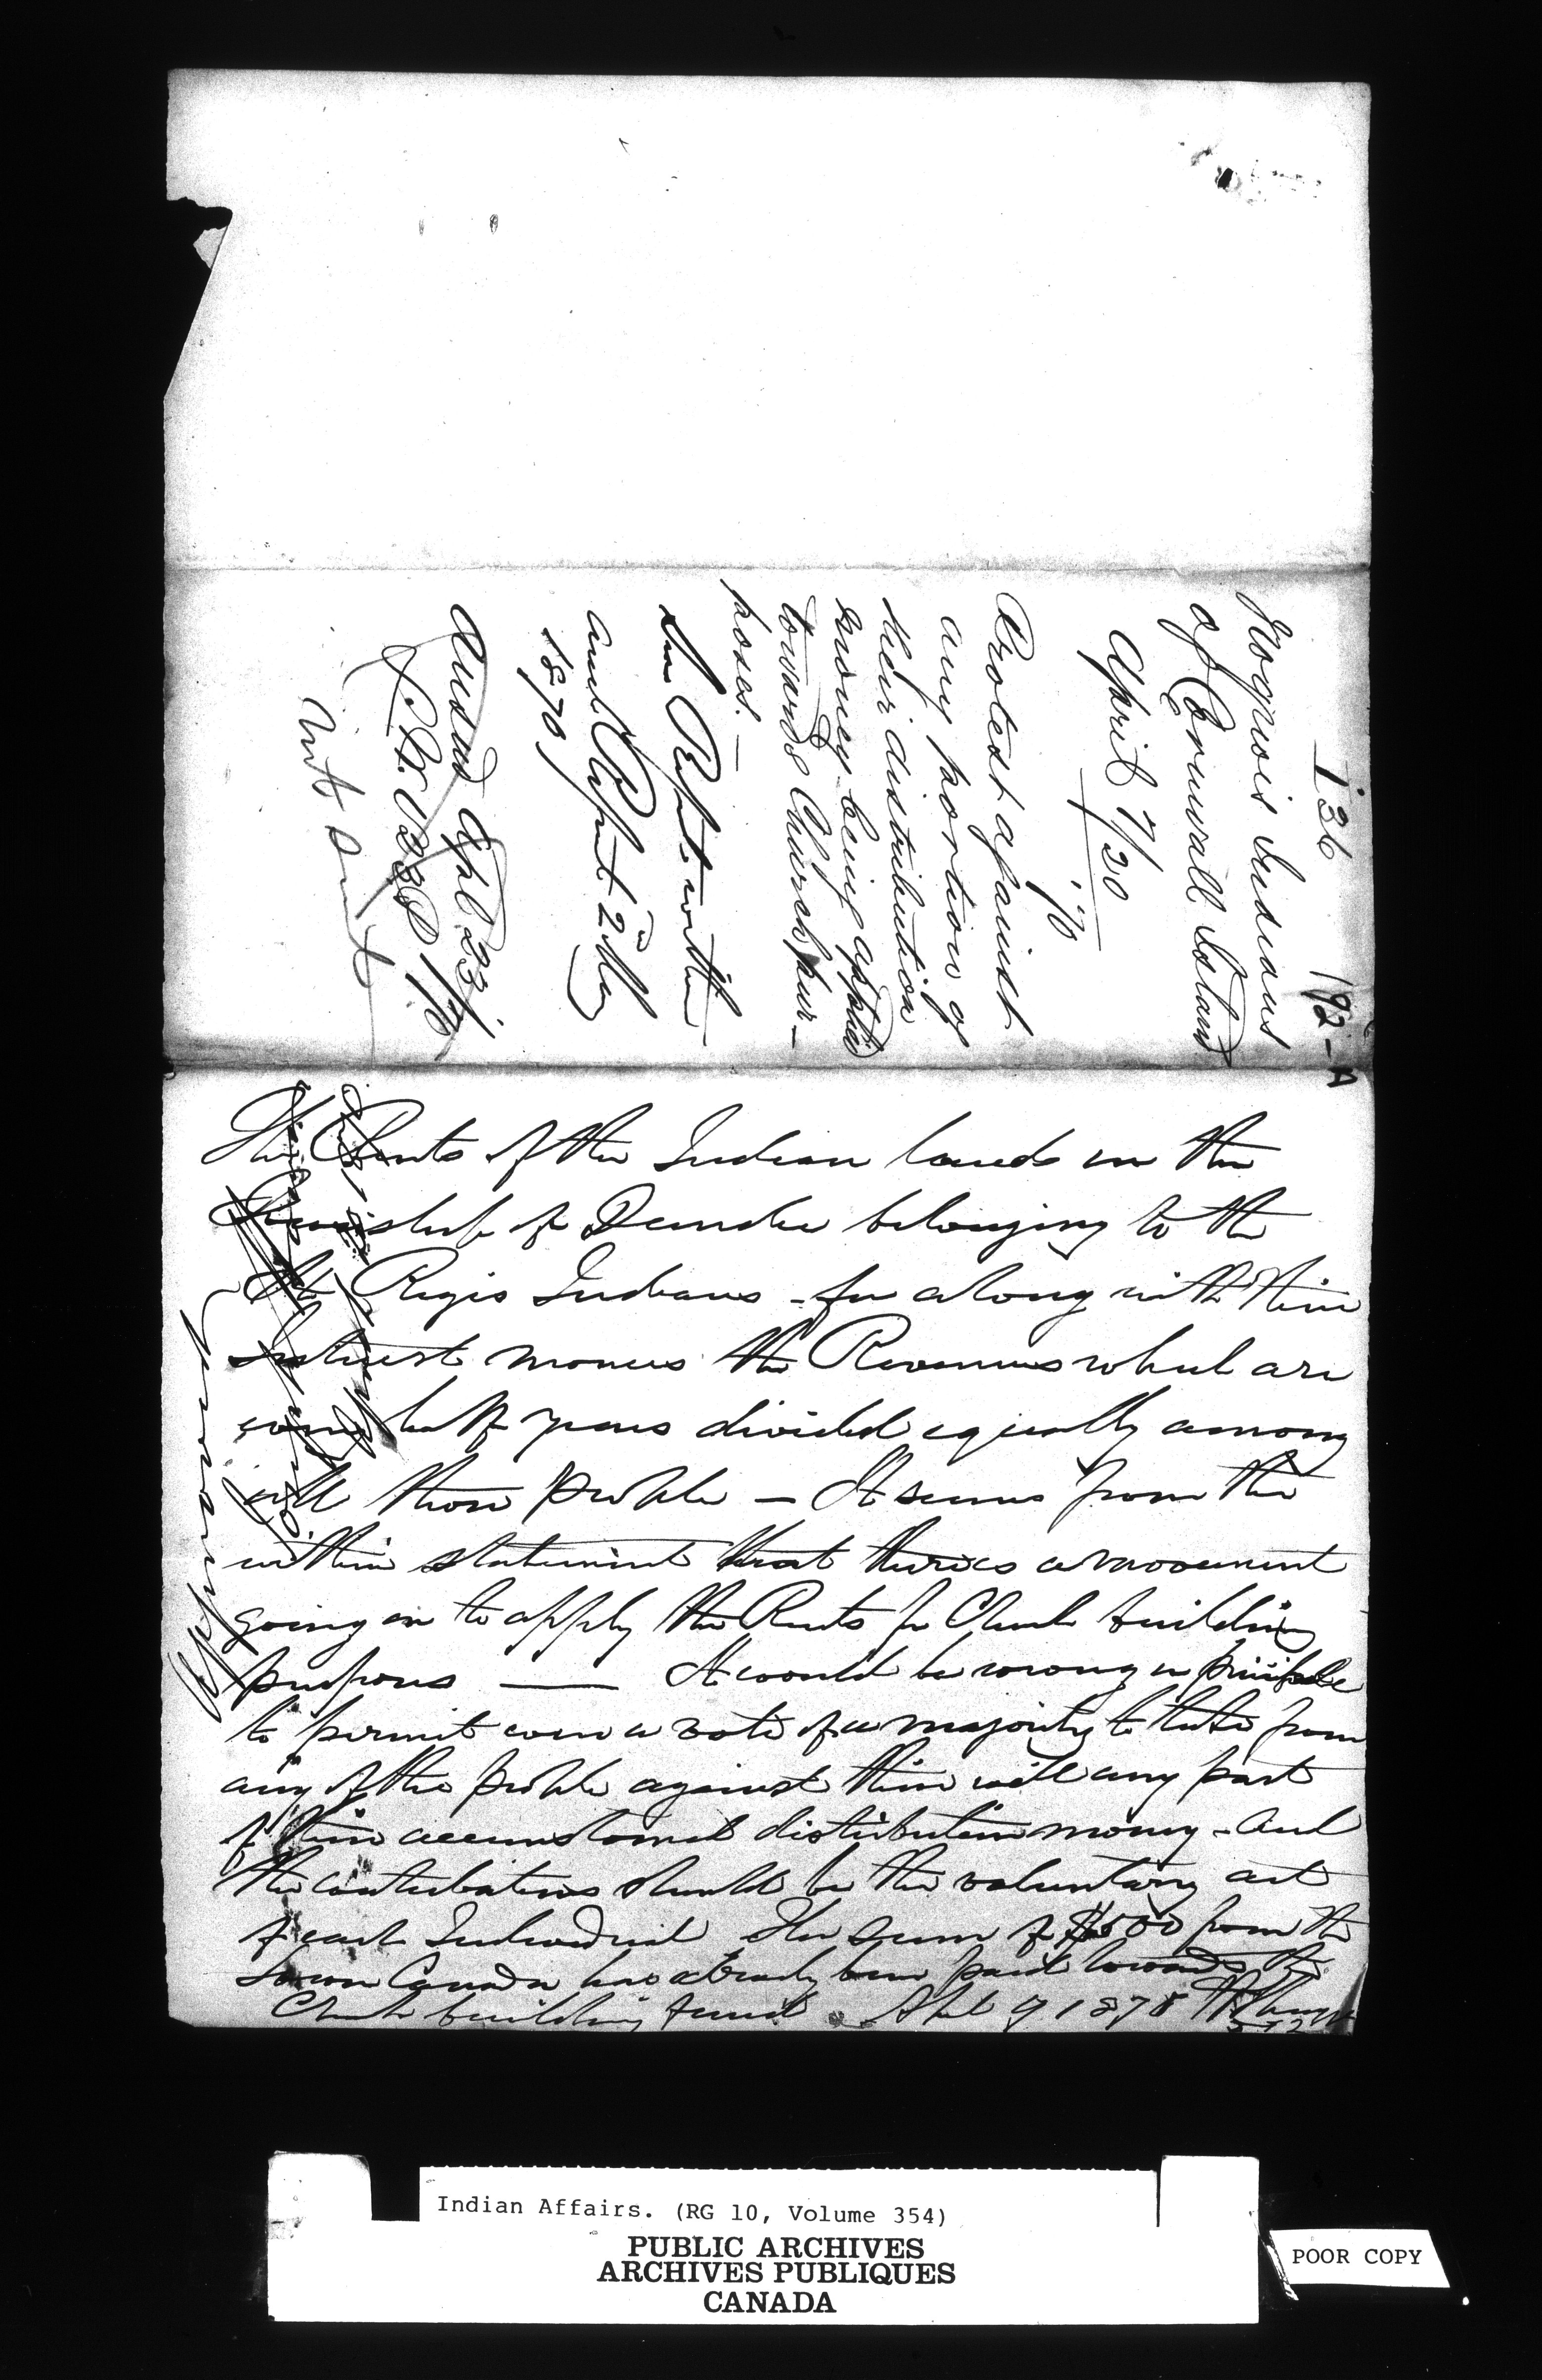 I 36 192-A
Iroquois Indians
of Cornwall Island
April 7/20
'70
Protest against
any portion of
their distribution
money being applied
towards Church pur-
poses. —
See Report within
and Report 2 May
1870
Ansd Apl 23/70
Int Sunt
The Rents of the Indian lands in the
Township of Dundee belonging to the
St Regis Indians - for along with their
Interest monies the Revenues which are
every half year divided equally among
all those people — It seems from the
within statement that there is a movement
going on to apply the Rents for Church building
purposes —— It would be wrong in principle
to permit even a vote of a majority to take from
any of the people against their will any part
of their accustomed distribution money - and
the contributions should be the voluntary act
of each Individual The sum of $500 from the
Lower Canada has already been paid towards the
Church building fund Apl 9 1870
Indian Affairs. (RG 10, Volume 354)
PUBLIC ARCHIVES
ARCHIVES PUBLIQUES
CANADA
POOR COPY